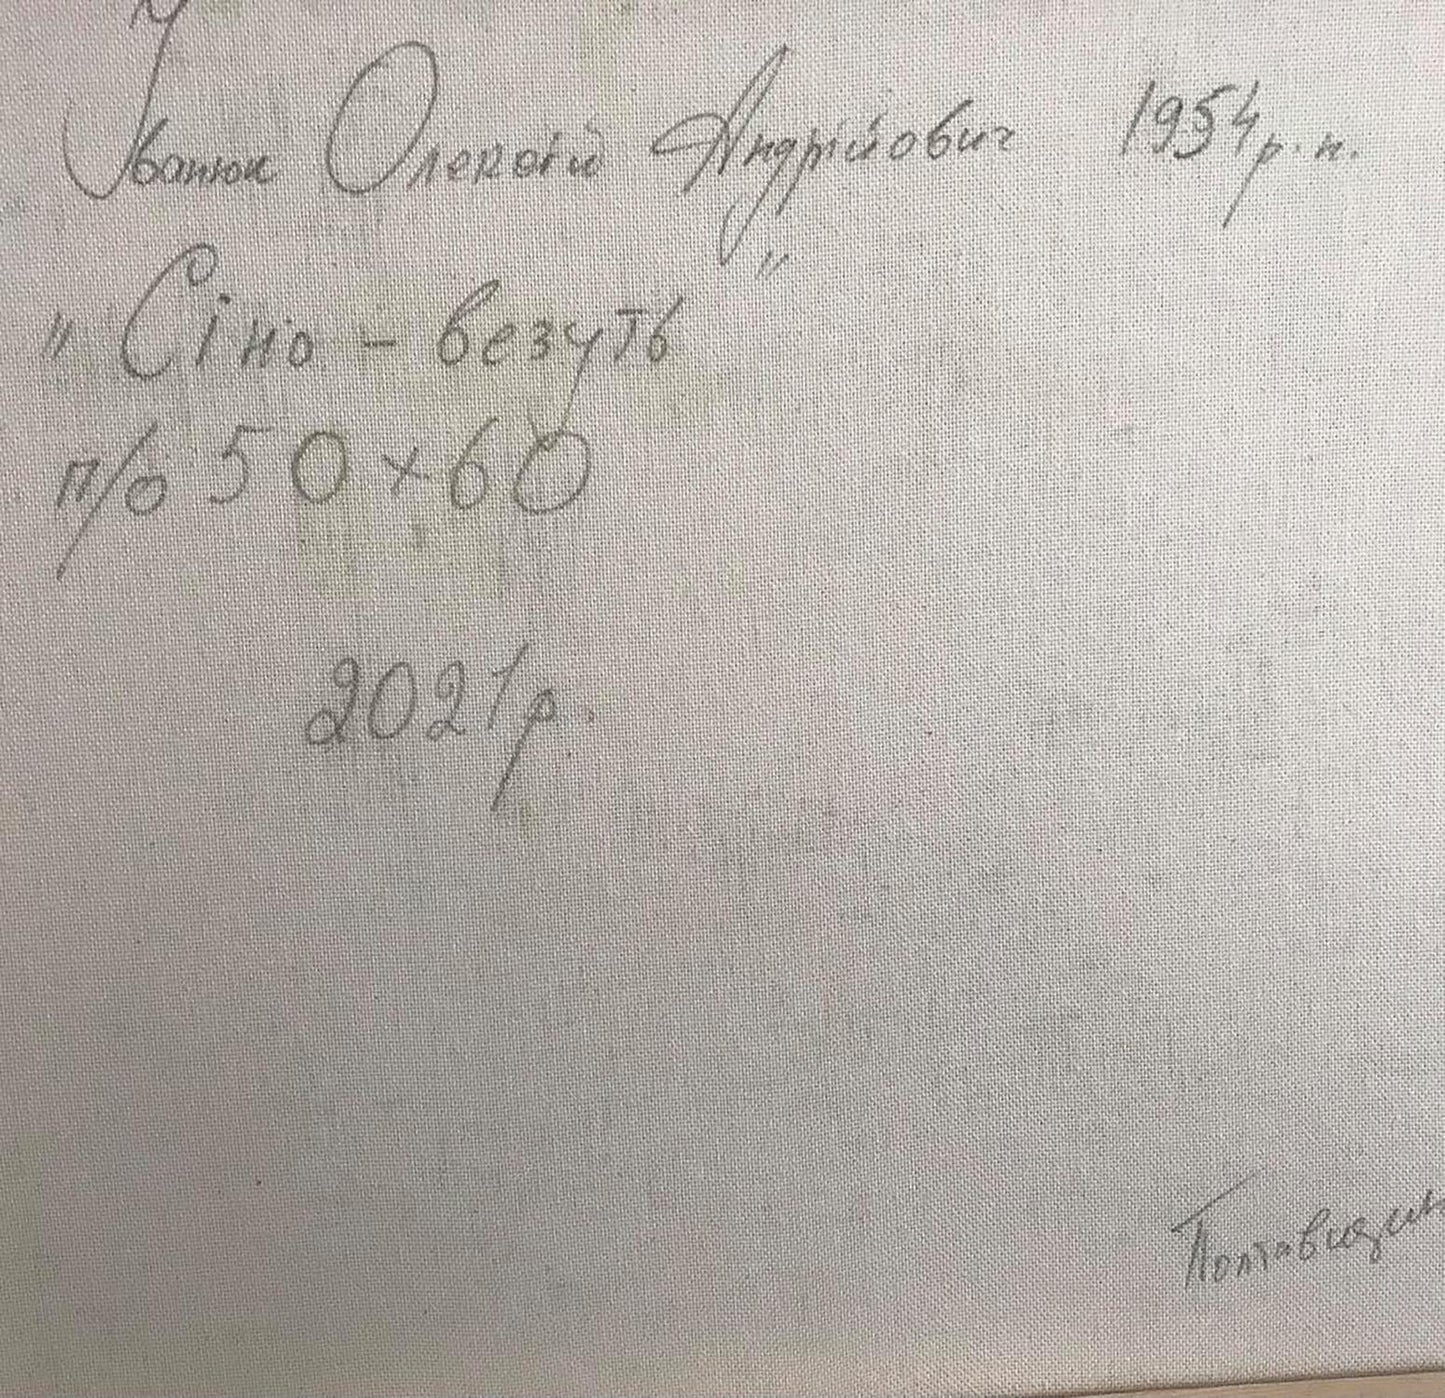 Іванюк Олексій Андрійович 1954 р.н.
"Сіно - везуть"
п/о 50×60
2021р.
Полтавщин